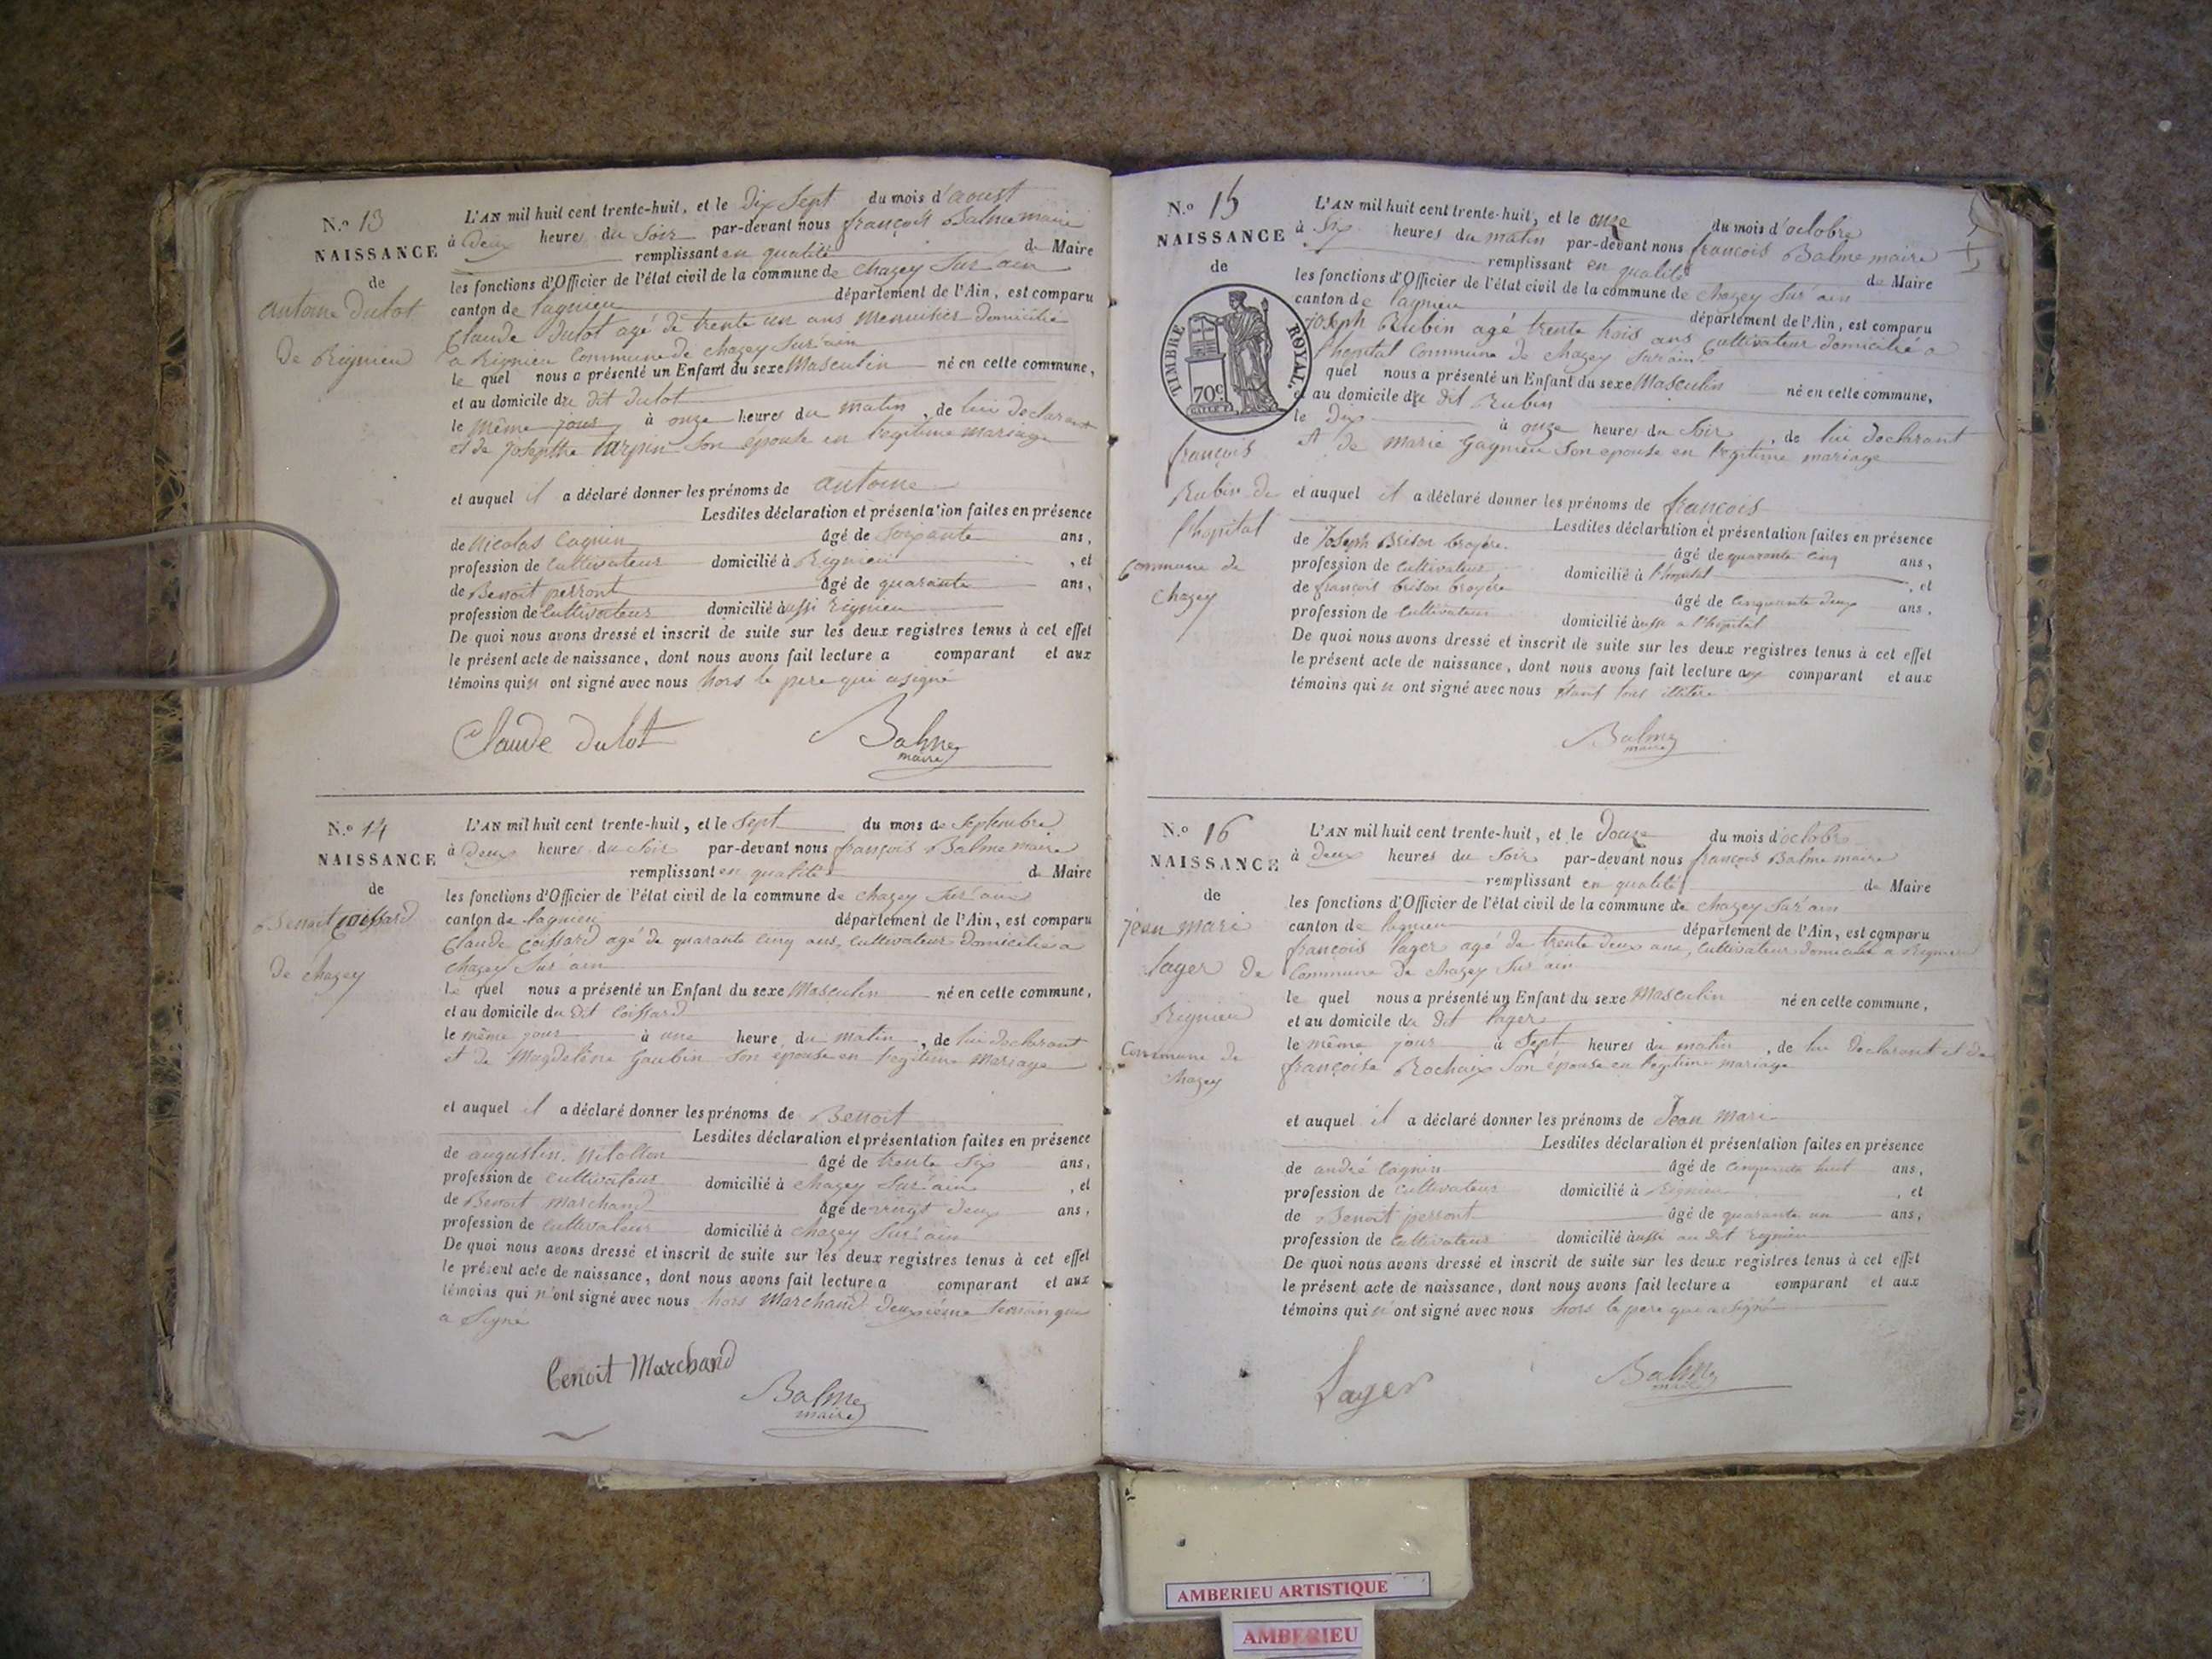 N.° 13
NAISSANCE
de
antoine Dulot
De Rignieu
L'AN mil huit cent trente-huit, et le Dix Sept du mois d'aoust
à Deux heures du Soir par-devant nous françois Balme maire
remplissant en qualité de Maire
les fonctions d'Officier de l'état civil de la commune de chazey Sur ain
canton de lagnieu département de l'Ain, est comparu
Claude Dulot agé de trente un ans Menuisier domicilié
a Rignieu Commune de chazey Sur ain
le quel nous a présenté un Enfant du sexe Masculin né en cette commune,
et au domicile du dit Dulot
le même jour à onze heures du matin, de lui Declarant
et de Josephte tarpin Son epouse en legitime mariage
et auquel il a déclaré donner les prénoms de antoine
Lesdites déclaration et présentation faites en présence
de Nicolas Cagnin âgé de Soixante ans,
profession de Cultivateur domicilié à Rignieu, et
de Benoit perront âgé de quarante ans,
profession de Cultivateur domicilié aussi Rignieu
De quoi nous avons dressé et inscrit de suite sur les deux registres tenus à cet effet
le présent acte de naissance, dont nous avons fait lecture a comparant et aux
témoins qui n ont signé avec nous hors le pere qui a signé
Claude Dulot Balme
maire
N.° 14
NAISSANCE
de
Benoit Coissard
De chazey
L'AN mil huit cent trente-huit, et le Sept du mois de Septembre
à Deux heures du Soir par-devant nous françois Balme maire
remplissant en qualité de Maire
les fonctions d'Officier de l'état civil de la commune de chazey Sur ain
canton de lagnieu département de l'Ain, est comparu
Claude Coissard agé de quarante cinq ans, cultivateur domicilié a
chazey Sur ain
le quel nous a présenté un Enfant du sexe Masculin né en cette commune,
et au domicile du dit Coissard
le même jour à une heure du matin, de lui declarant
et de Magdeleine Gaubin Son epouse en legitime Mariage
et auquel il a déclaré donner les prénoms de Benoit
Lesdites déclaration et présentation faites en présence
de augustin âgé de trente Six ans,
profession de Cultivateur domicilié à chazey Sur ain, et
de Benoit Marchand âgé de vingt deux ans,
profession de Cultivateur domicilié à chazey Sur ain
De quoi nous avons dressé et inscrit de suite sur les deux registres tenus à cet effet
le présent acte de naissance, dont nous avons fait lecture a comparant et aux
témoins qui n'ont signé avec nous hors Marchand deuxième temoin qui
a Signé
benoit Marchand
Balme
maire
N.° 15
NAISSANCE
de
TIMBRE ROYAL.
70c
françois
Rubin de
l'hopital
Commune de
Chazey
L'AN mil huit cent trente-huit, et le onze du mois d'octobre
à Six heures du matin par-devant nous françois Balme maire
remplissant en qualité de Maire
les fonctions d'Officier de l'état civil de la commune de chazey Sur ain
canton de lagnieu département de l'Ain, est comparu
joseph Rubin agé trente trois ans Cultivateur domicilié a
l'hopital Commune de chazey Sur ain
quel nous a présenté un Enfant du sexe Masculin né en cette commune,
et au domicile du dit Rubin
le Dix à onze heures du Soir, de lui declarant
et de Marie Gagnieu Son epouse en legitime mariage
et auquel il a déclaré donner les prénoms de françois
Lesdites déclaration et présentation faites en présence
de Joseph Brison broyére âgé de quarante cinq ans,
profession de Cultivateur domicilié à l'hopital, et
de françois brison broyére âgé de Cinquante deux ans,
profession de Cultivateur domicilié aussi a l'hopital
De quoi nous avons dressé et inscrit de suite sur les deux registres tenus à cet effet
le présent acte de naissance, dont nous avons fait lecture aux comparant et aux
témoins qui n ont signé avec nous étant tous
Balme
maire
N.° 16
NAISSANCE
de
jean mari
lager de
Rignieu
Commune de
chazey
L'AN mil huit cent trente-huit, et le Douze du mois d'octobre
à Deux heures du Soir par-devant nous françois Balme maire
remplissant en qualité de Maire
les fonctions d'Officier de l'état civil de la commune de chazey Sur ain
canton de lagnieu département de l'Ain, est comparu
françois lager agé de trente Deux ans, Cultivateur domicilié a Rignieu
Commune de chazey Sur ain
le quel nous a présenté un Enfant du sexe Masculin né en cette commune,
et au domicile du dit lager
le même jour à Sept heures du matin, de lui declarant et de
françoise Rochaix Son épouse en legitime mariage
et auquel il a déclaré donner les prénoms de Jean Mari
Lesdites déclaration et présentation faites en présence
de andré Cagnin âgé de Cinquante huit ans,
profession de Cultivateur domicilié à Rignieu, et
de Benoit perront âgé de quarante un ans,
profession de Cultivateur domicilié aussi au dit Rignieu
De quoi nous avons dressé et inscrit de suite sur les deux registres tenus à cet effet
le présent acte de naissance, dont nous avons fait lecture a comparant et aux
témoins qui n'ont signé avec nous hors le pere qui a signé
Lager Balme
maire
AMBERIEU ARTISTIQUE
AMBERIEU